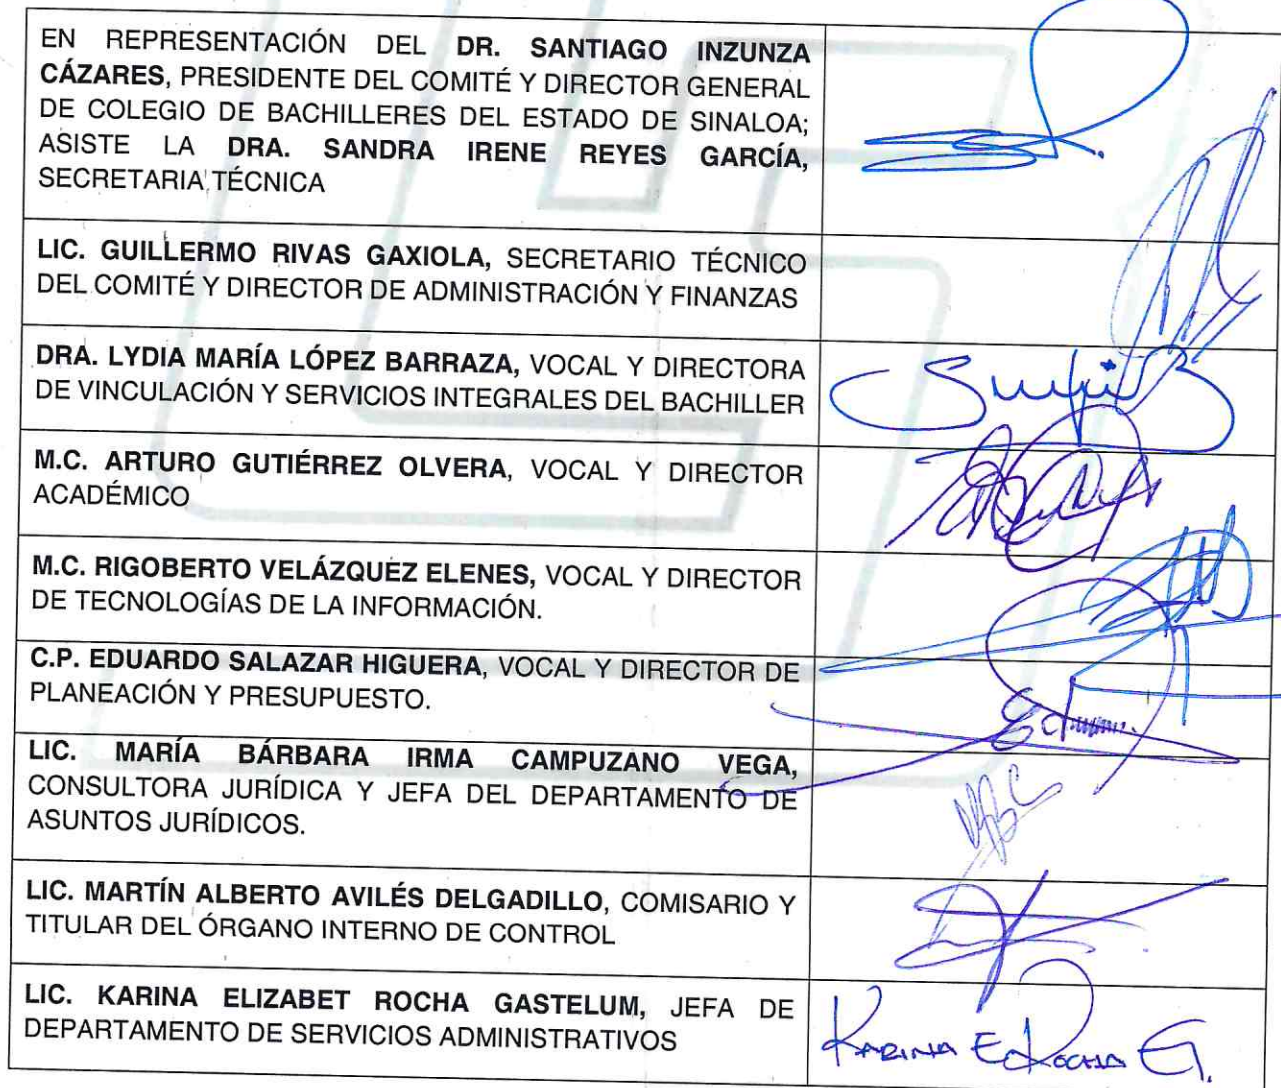 EN REPRESENTACIÓN DEL DR. SANTIAGO INZUNZA
CÁZARES, PRESIDENTE DEL COMITÉ Y DIRECTOR GENERAL
DE COLEGIO DE BACHILLERES DEL ESTADO DE SINALOA;
ASISTE LA DRA. SANDRA IRENE REYES GARCÍA,
SECRETARIA TÉCNICA
LIC. GUILLERMO RIVAS GAXIOLA, SECRETARIO TÉCNICO
DEL COMITÉ Y DIRECTOR DE ADMINISTRACIÓN Y FINANZAS
DRA. LYDIA MARÍA LÓPEZ BARRAZA, VOCAL Y DIRECTORA
DE VINCULACIÓN Y SERVICIOS INTEGRALES DEL BACHILLER
M.C. ARTURO GUTIÉRREZ OLVERA, VOCAL Y DIRECTOR
ACADÉMICO
M.C. RIGOBERTO VELÁZQUEZ ELENES, VOCAL Y DIRECTOR
DE TECNOLOGÍAS DE LA INFORMACIÓN.
C.P. EDUARDO SALAZAR HIGUERA, VOCAL Y DIRECTOR DE
PLANEACIÓN Y PRESUPUESTO.
LIC. MARÍA BÁRBARA IRMA CAMPUZANO VEGA,
CONSULTORA JURÍDICA Y JEFA DEL DEPARTAMENTO DE
ASUNTOS JURÍDICOS.
LIC. MARTÍN ALBERTO AVILÉS DELGADILLO, COMISARIO Y
TITULAR DEL ÓRGANO INTERNO DE CONTROL
LIC. KARINA ELIZABET ROCHA GASTELUM, JEFA DE
DEPARTAMENTO DE SERVICIOS ADMINISTRATIVOS
KARINA E ROCHA G.